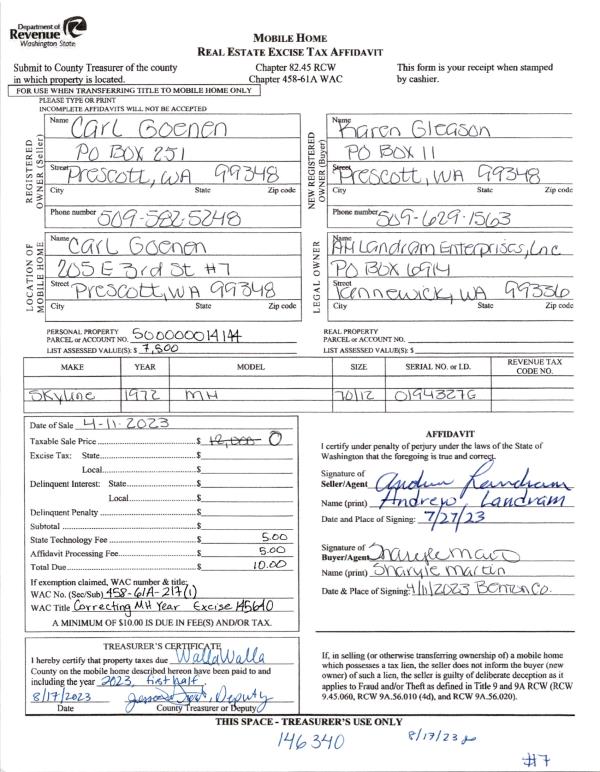 Department of
Revenue
Washington State
MOBILE HOME
REAL ESTATE EXCISE TAX AFFIDAVIT
Submit to County Treasurer of the county
in which property is located.
Chapter 82.45 RCW
Chapter 458-61A WAC
This form is your receipt when stamped
by cashier.
FOR USE WHEN TRANSFERRING TITLE TO MOBILE HOME ONLY
PLEASE TYPE OR PRINT
INCOMPLETE AFFIDAVITS WILL NOT BE ACCEPTED
REGISTERED OWNER (Seller)
Name Carl Goenen
PO BOX 251
Street Prescott, WA 99348
City State Zip code
Phone number 509-582-5248
NEW REGISTERED OWNER (Buyer)
Name Karen Gleason
PO BOX 11
Street Prescott, WA 99348
City State Zip code
Phone number 509-629-1563
LOCATION OF MOBILE HOME
Name Carl Goenen
205 E 3rd St #7
Street Prescott, WA 99348
City State Zip code
LEGAL OWNER
Name AH Landram Enterprises, Inc
PO BOX 6914
Street Kennewick, WA 99336
City State Zip code
PERSONAL PROPERTY
PARCEL or ACCOUNT NO. 500000014144
LIST ASSESSED VALUE(S): $ 7,800
REAL PROPERTY
PARCEL or ACCOUNT NO.
LIST ASSESSED VALUE(S): $
MAKE YEAR MODEL SIZE SERIAL NO. or I.D. REVENUE TAX CODE NO.
Skyline 1972 MH 70/12 0194327G
Date of Sale 4-11-2023
Taxable Sale Price $ 12,000 0
Excise Tax: State $
Local $
Delinquent Interest: State $
Local $
Delinquent Penalty $
Subtotal $
State Technology Fee $ 5.00
Affidavit Processing Fee $ 5.00
Total Due $ 10.00
If exemption claimed, WAC number & title:
WAC No. (Sec/Sub) 458-61A-217(1)
WAC Title Correcting MH Year Excise 145640
A MINIMUM OF $10.00 IS DUE IN FEE(S) AND/OR TAX.
AFFIDAVIT
I certify under penalty of perjury under the laws of the State of
Washington that the foregoing is true and correct.
Signature of
Seller/Agent Andrew Landram
Name (print) Andrew Landram
Date and Place of Signing: 7/27/23
Signature of
Buyer/Agent Sharyle Martin
Name (print) Sharyle Martin
Date & Place of Signing: 4/11/2023 Benton Co.
TREASURER'S CERTIFICATE
I hereby certify that property taxes due Walla Walla
County on the mobile home described hereon have been paid to and
including the year 2023, first half.
8/17/2023 Deputy
Date County Treasurer or Deputy
If, in selling (or otherwise transferring ownership) of a mobile home
which possesses a tax lien, the seller does not inform the buyer (new
owner) of such a lien, the seller is guilty of deliberate deception as it
applies to Fraud and/or Theft as defined in Title 9 and 9A RCW (RCW
9.45.060, RCW 9A.56.010 (4d), and RCW 9A.56.020).
THIS SPACE - TREASURER'S USE ONLY
146340
8/17/23
#7